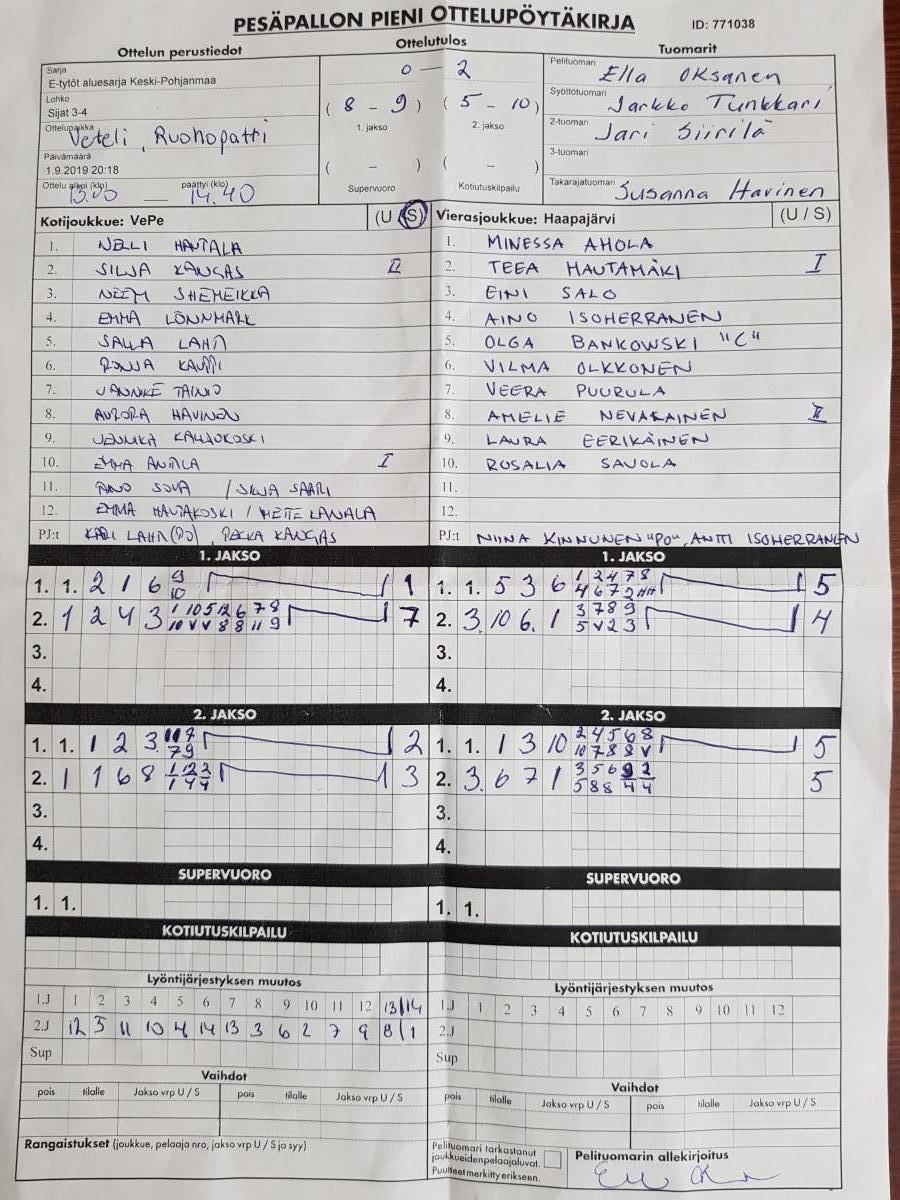 PESÄPALLON PIENI OTTELUPÖYTÄKIRJA ID: 771038
Ottelun perustiedot Ottelutulos Tuomarit
Sarja
E-tytöt aluesarja Keski-Pohjanmaa
Lohko
Sijat 3-4
Ottelupaikka
Veteli, Ruohopatti
Päivämäärä
1.9.2019 20:18
Ottelu alkoi (klo) päättyi (klo)
13.00 — 14.40
0 — 2
(8 - 9) (5 - 10)
1. jakso 2. jakso
( - ) ( - )
Supervuoro Kotiutuskilpailu
Pelituomari Ella Oksanen
Syöttötuomari Jarkko Tunkkari
2-tuomari Jari Siirilä
3-tuomari
Takarajatuomari Susanna Havinen
Kotijoukkue: VePe (U S)
1. NELLI HAUTALA
2. SILJA KANGAS II
3. SHEMEIKKA
4. EMMA LÖNNMARK
5. SALLA LAHTI
6. RONJA KAUPPI
7. JANNIKE TAINIO
8. AURORA HAVINEN
9. KAUJUKOSKI
10. EMMA ANTTILA I
11. AINO SOVA / SILJA SAARI
12. EMMA HAUTAKOSKI / KANALA
PJ:t KARI LAHTI (PJ), PEKKA KANGAS
Vierasjoukkue: Haapajärvi (U / S)
1. MINESSA AHOLA
2. TEEA HAUTAMÄKI I
3. EINI SALO
4. AINO ISOHERRANEN
5. OLGA BANKOWSKI "C"
6. VILMA OLKKONEN
7. VEERA PUURULA
8. AMELIE NEVAKAINEN II
9. LAURA EERIKÄINEN
10. ROSALIA SAVOLA
11.
12.
PJ:t NIINA KINNUNEN "PO", ANTTI ISOHERRANEN
1. JAKSO
1. 1. 2 1 6 9 10 1
2. 1 2 4 3 1 10 5 12 6 7 8 10 V V 8 8 11 9 7
3.
4.
1. JAKSO
1. 1. 5 3 6 1 2 4 7 8 4 6 7 2 5
2. 3. 10 6. 1 3 7 8 9 5 V 2 3 4
3.
4.
2. JAKSO
1. 1. 1 2 3. 7 9 2
2. 1 1 6 8 3
3.
4.
2. JAKSO
1. 1. 1 3 10 2 4 5 6 8 10 7 8 8 V 5
2. 3. 6 7 1 3 5 6 9 2 5 8 8 4 4 5
3.
4.
SUPERVUORO
1. 1.
SUPERVUORO
1. 1.
KOTIUTUSKILPAILU
KOTIUTUSKILPAILU
Lyöntijärjestyksen muutos
1.J 1 2 3 4 5 6 7 8 9 10 11 12 13/14
2.J 12 5 11 10 4 14 13 3 6 2 7 9 8/1
Sup
Lyöntijärjestyksen muutos
1.J 1 2 3 4 5 6 7 8 9 10 11 12
2.J
Sup
Vaihdot
pois tilalle Jakso vrp U / S pois tilalle Jakso vrp U / S
Vaihdot
pois tilalle Jakso vrp U / S pois tilalle Jakso vrp U / S
Rangaistukset (joukkue, pelaaja nro, jakso vrp U / S ja syy)
Pelituomari tarkastanut
joukkueidenpelaajaluvat.
Puutteet merkitty erikseen.
Pelituomarin allekirjoitus